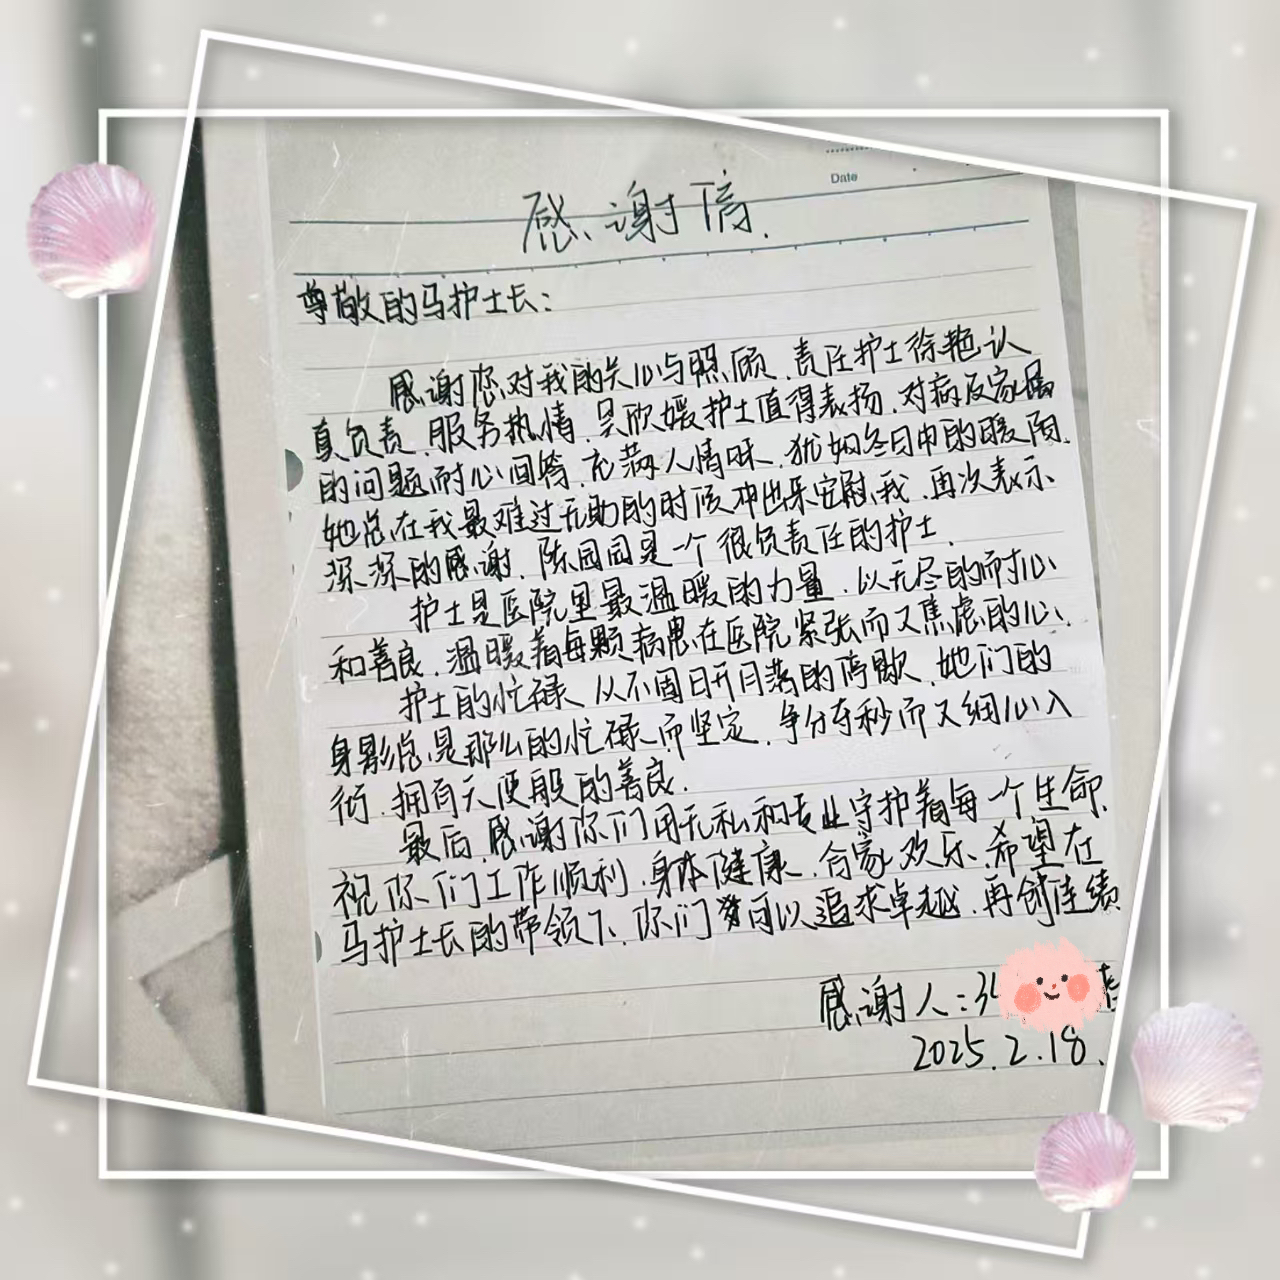 Date
感谢信.
尊敬的马护士长：
感谢您对我的关心与照顾，责任护士徐艳认
真负责，服务热情，吴欣媛护士值得表扬，对病友家属
的问题耐心回答，充满人情味，犹如冬日中的暖阳.
她总在我最难过无助的时候冲出来安慰我，再次表示
深深的感谢，陈园园是一个很负责任的护士.
护士是医院里最温暖的力量，以无尽的耐心
和善良，温暖着每颗病患在医院紧张而又焦虑的心.
护士的忙碌，从不因日升月落的停歇，她们的
身影总是那么的忙碌而坚定，争分夺秒而又细心入
微，拥有天使般的善良.
最后，感谢你们用无私和专业守护着每一个生命.
祝你们工作顺利，身体健康，合家欢乐，希望在
马护士长的带领下，你们可以追求卓越，再创佳绩
感谢人：
2025.2.18.